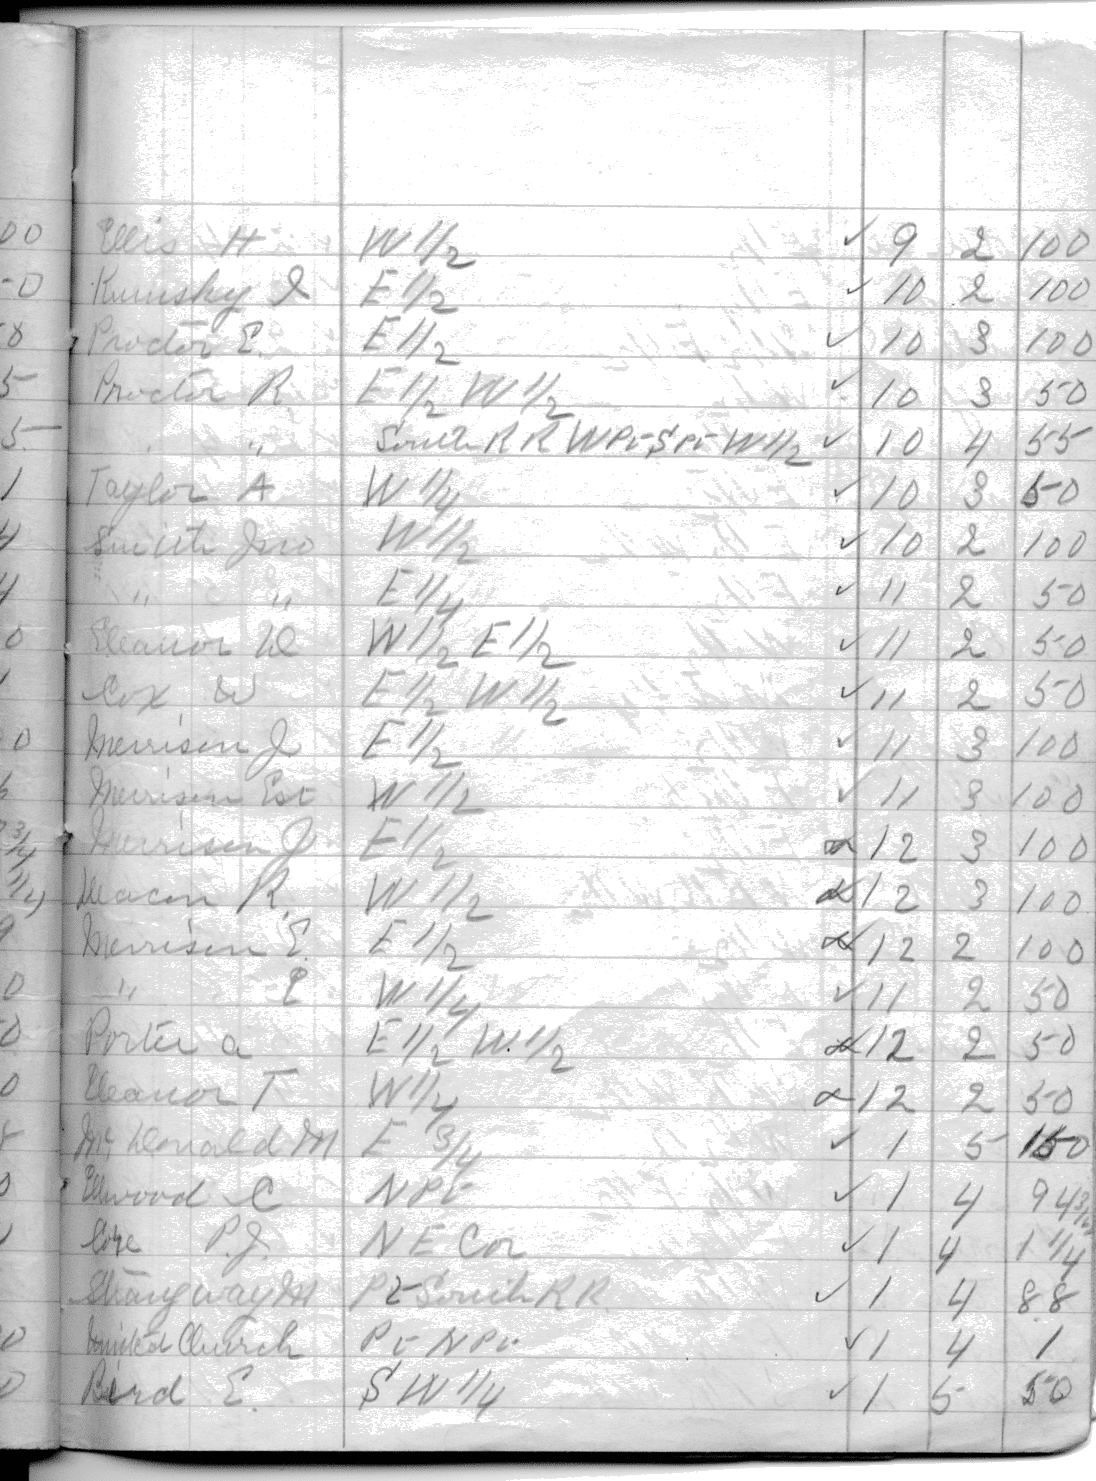 00 Ellis H W 1/2 ✓ 9 2 100
0 Kumsky J E 1/2 ✓ 10 2 100
8 Proctor E. E 1/2 ✓ 10 3 100
5 Proctor R E 1/2 W 1/2 ✓ 10 3 50
5 " " South R R W Pt S Pt W 1/2 ✓ 10 4 55
1 Taylor A W 1/4 ✓ 10 3 50
4 Smith Jno W 1/2 ✓ 10 2 100
4 " " E 1/4 ✓ 11 2 50
0 Eleanor W 1/2 E 1/2 ✓ 11 2 50
Cox W E 1/2 W 1/2 ✓ 11 2 50
0 Morrison J E 1/2 ✓ 11 3 100
Morrison Est W 1/2 ✓ 11 3 100
3/4 Morrison J E 1/2 12 3 100
1/4 Deacon R. W 1/2 12 3 100
9 Morrison E. E 1/2 12 2 100
0 " E W 1/4 ✓ 11 2 50
0 Porter a E 1/2 W. 1/2 12 2 50
0 Eleanor T W 1/4 12 2 50
Mc Donald M E 3/4 ✓ 1 5 150
0 Ellwood C N Pt ✓ 1 4 94 3/4
P.J. N E Cor ✓ 1 4 1 1/4
Strangway M Pt South R R ✓ 1 4 88
0 United Church Pt N Pt ✓ 1 4 1
0 Bird E. S W 1/4 ✓ 1 5 50